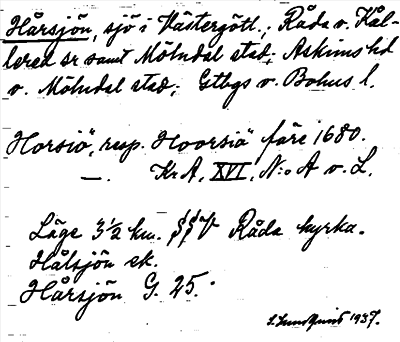 Hårsjön, sjö i Västergötl.; Råda o. Kål-
lered sr samt Mölndal stad; Askims hd
o. Mölndal stad; Gtbgs o. Bohus l.
Horsiö", resp. Hoorsiö" före 1680.
—. KrA, XVI, N:o A o. L.
Läge 3½ km. SSV Råda kyrka.
Hålsjön ek.
Hårsjön G. 25.
S. Lundquist 1937.